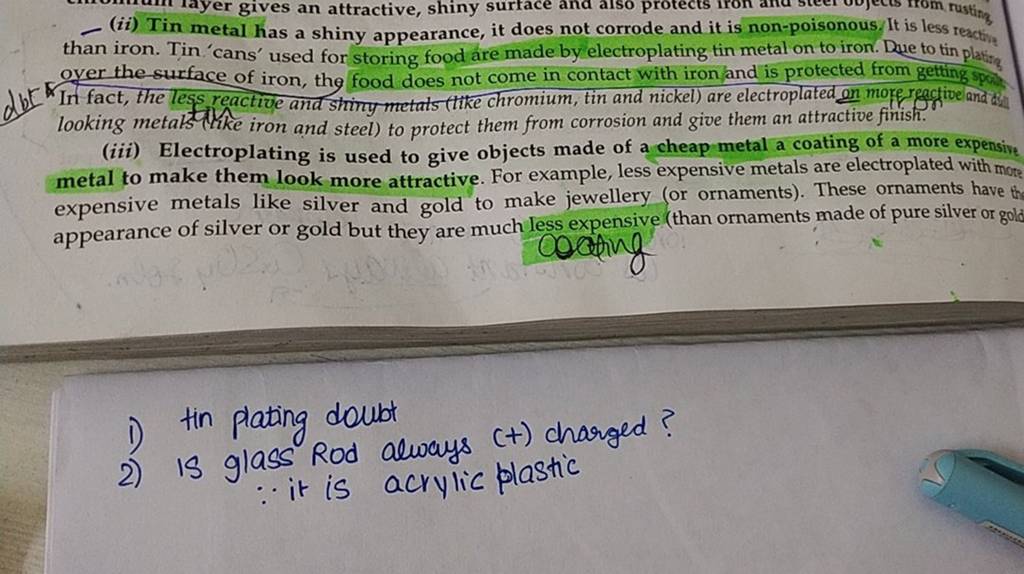 layer gives an attractive, shiny surface and also protects iron and steel objects from rusting.
(ii) Tin metal has a shiny appearance, it does not corrode and it is non-poisonous. It is less reactive
than iron. Tin 'cans' used for storing food are made by electroplating tin metal on to iron. Due to tin plating
over the surface of iron, the food does not come in contact with iron and is protected from getting
dbt
In fact, the less reactive and shiny metals (like chromium, tin and nickel) are electroplated on more reactive and dull
looking metals (like iron and steel) to protect them from corrosion and give them an attractive finish.
(iii) Electroplating is used to give objects made of a cheap metal a coating of a more expensive
metal to make them look more attractive. For example, less expensive metals are electroplated with more
expensive metals like silver and gold to make jewellery (or ornaments). These ornaments have the
appearance of silver or gold but they are much less expensive (than ornaments made of pure silver or gold
coating
1) tin plating doubt
2) is glass Rod always (+) charged ?
∵ it is acrylic plastic